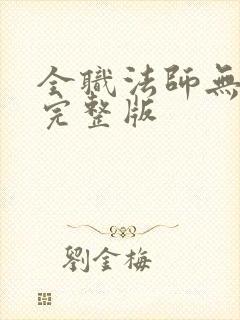 全職法師無
完整版
劉金梅